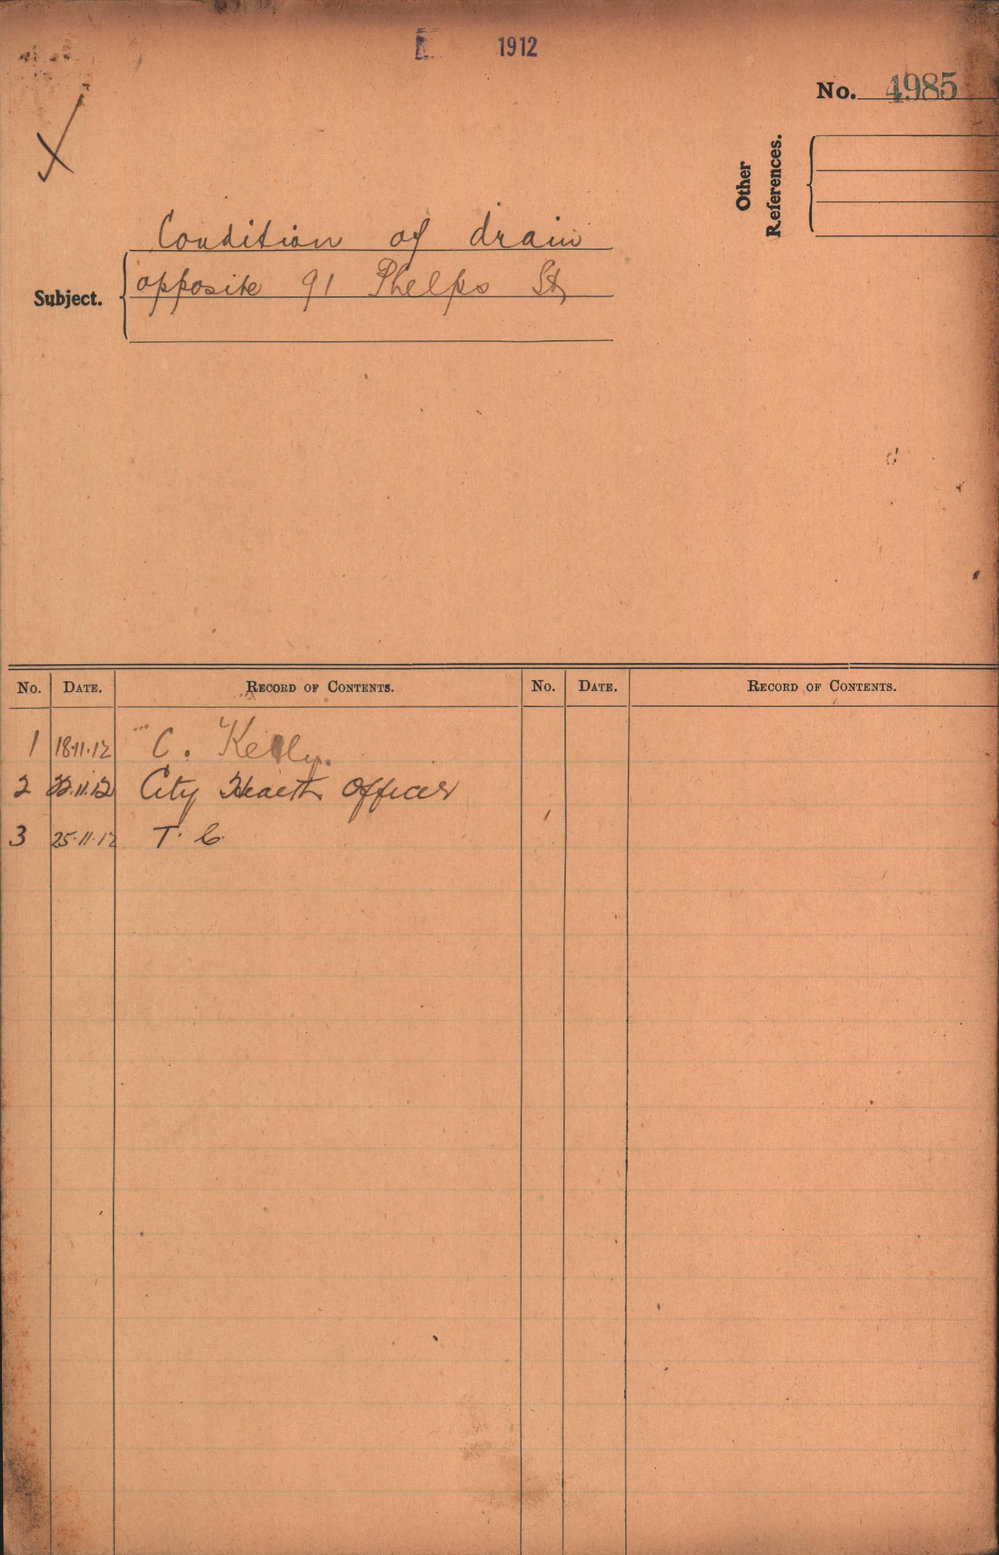 1912
No. 4985
Other References.
Condition of drain
Subject. opposite 91 Phelps St,
No. DATE. RECORD OF CONTENTS. No. DATE. RECORD OF CONTENTS.
1 18.11.12 C. Kelly.
2 22.11.12 City Health Officer
3 25.11.12 T. C.